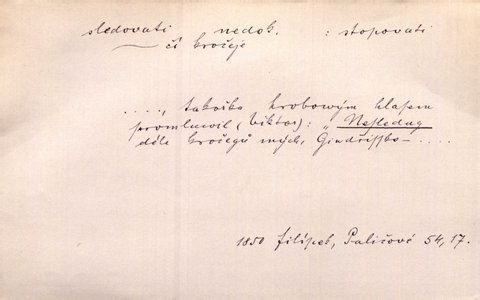 sledovati nedok. : stopovati
čí kročeje
...., takořka hrobowým hlasem
promluwil (Viktor): „Nesledug
déle kročegů mých, Gindřissko – ....
1850 Filípek, Paličowé 54, 17.